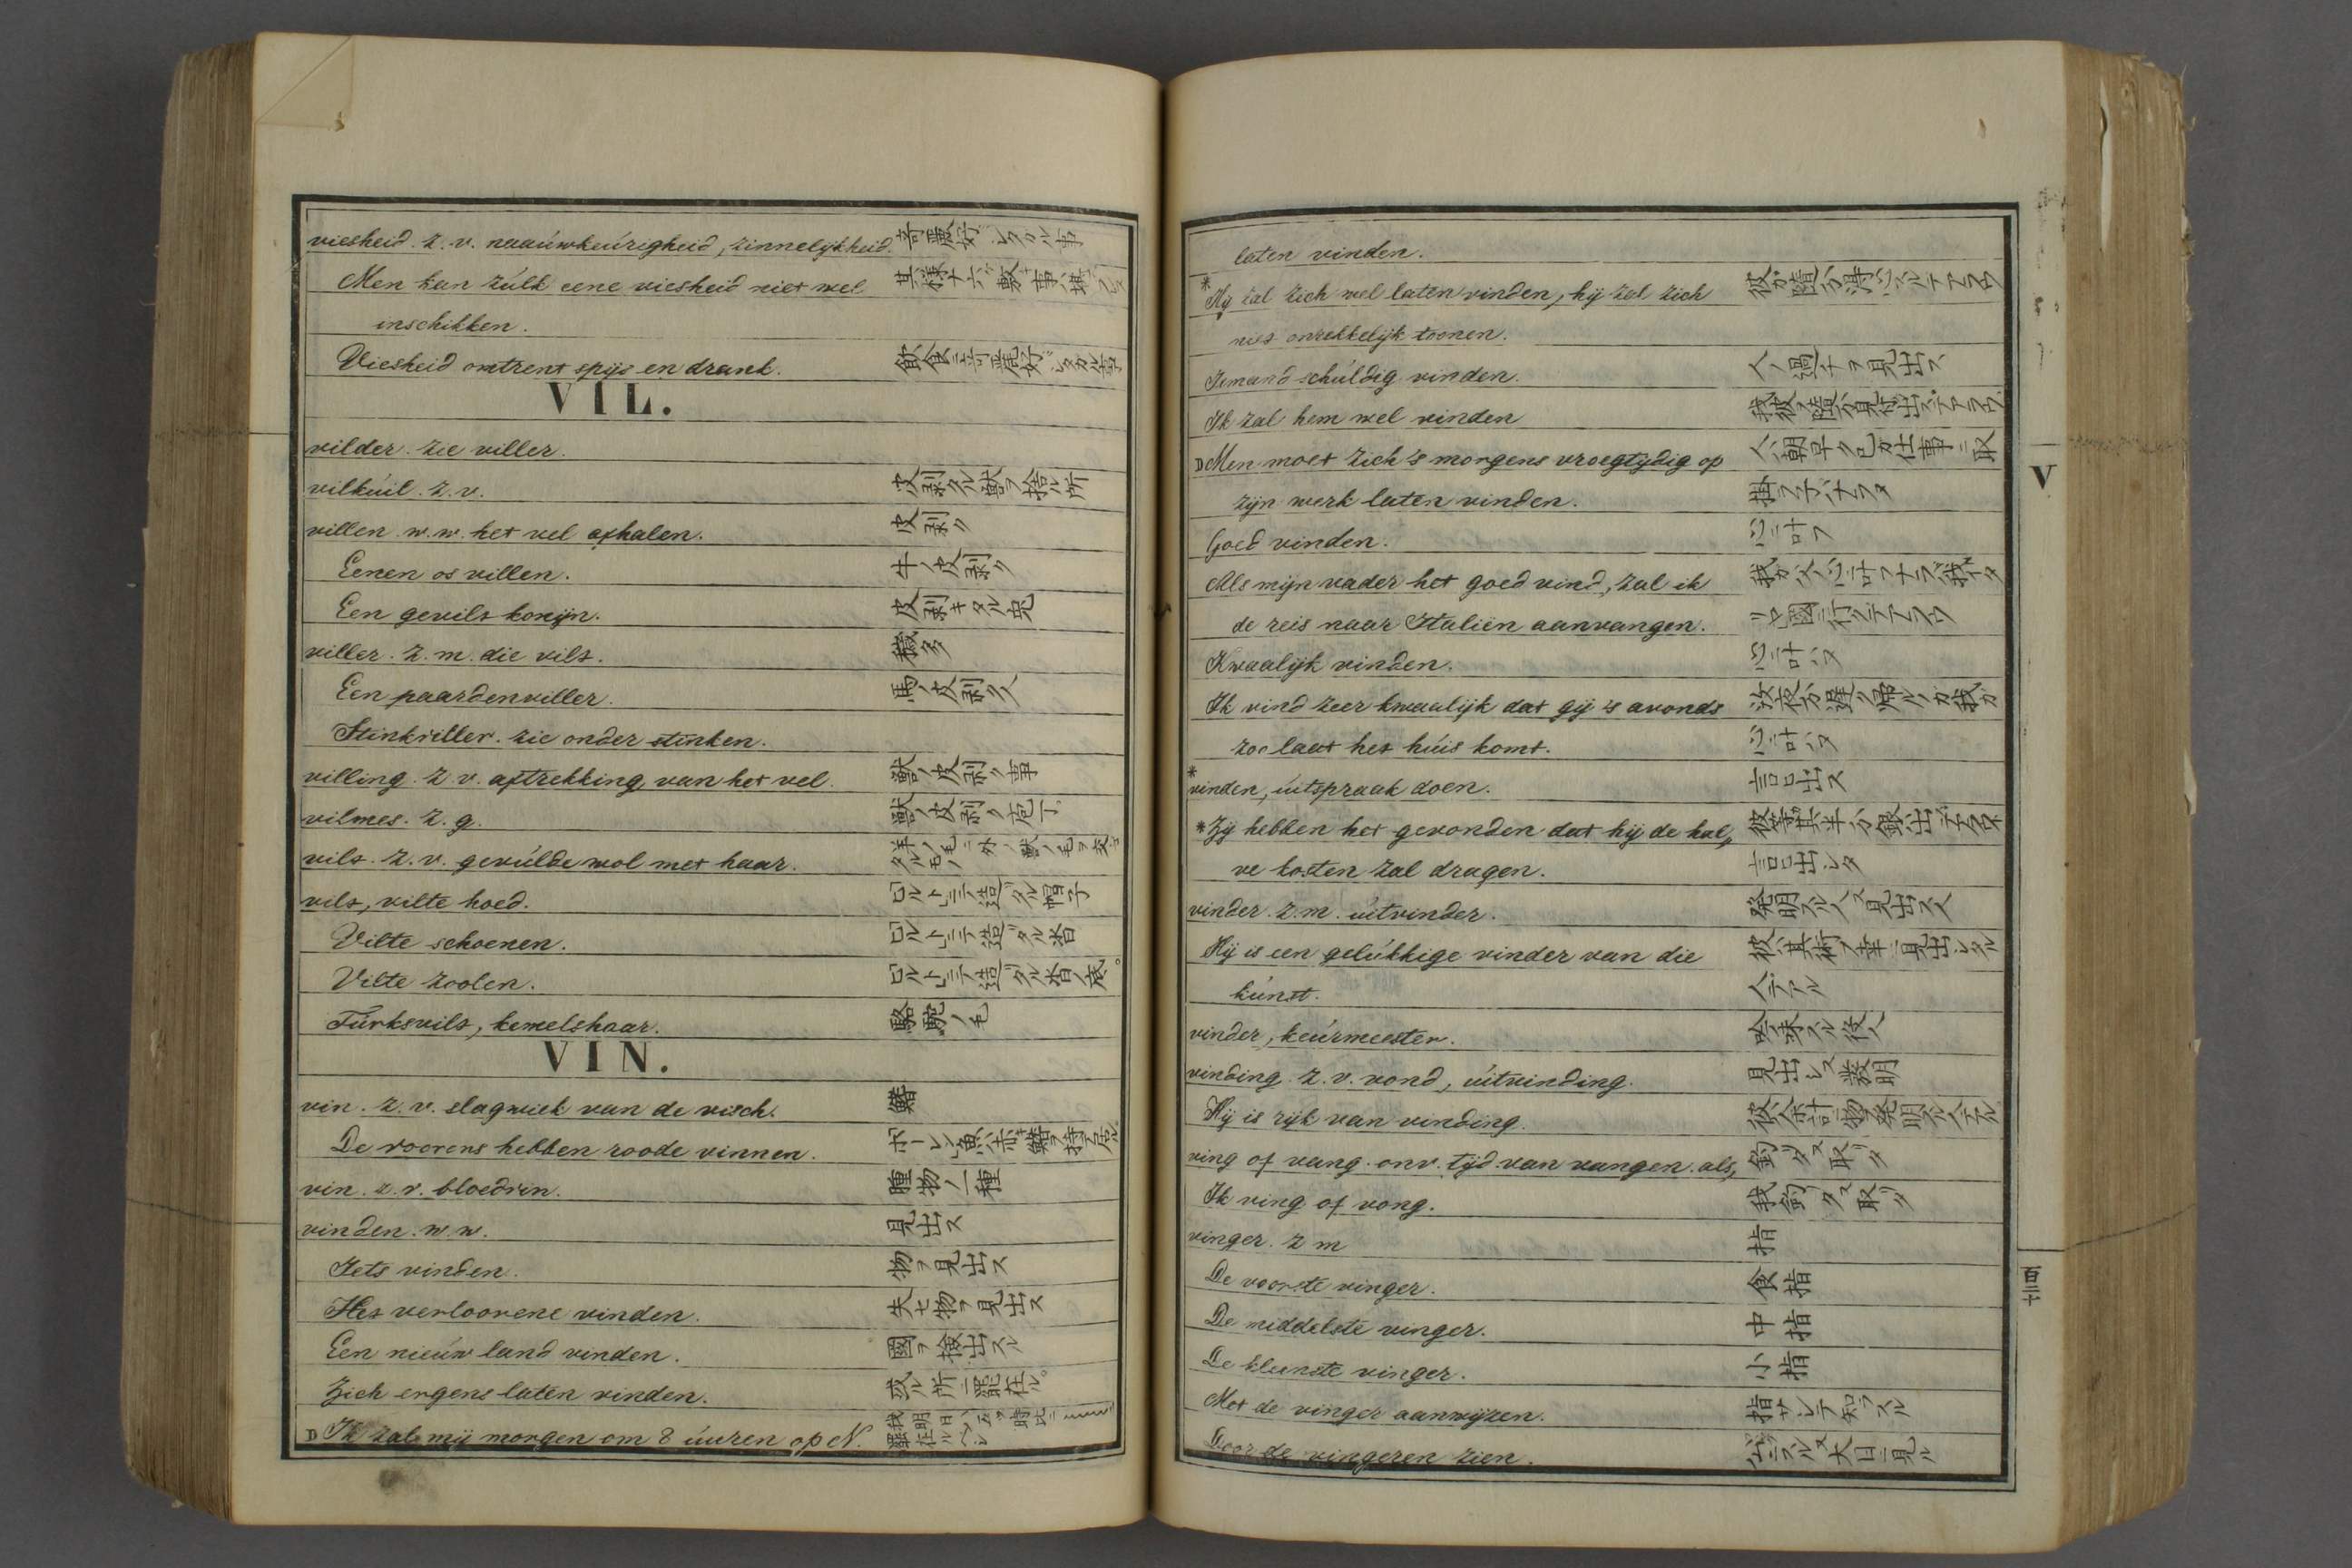 viesheid. z. v. naaúwkeúrigheid, zinnelijkheid. 奇麗好シタル事
Men kan zúlk eene viesheid niet wel
inschikken.
Viesheid omtrent spijs en drank.
VIL.
vilder. zie viller.
vilkúil. z. v. 皮剥タル獣ヲ捨ル所
villen. w. w. het vel afhalen. 皮剥ク
Eenen os villen. 牛ノ皮剥ク
Een gevilt konijn. 皮剥キタル兎
viller. z. m. die vilt. 穢多
Een paardenviller. 馬ノ皮剥ク人
Stinkviller. zie onder stinken.
villing. z. v. aftrekking van het vel. 獣ノ皮剥ク事
vilmes. z. g. 獣ノ皮剥ク庖丁
vilt. z. v. gevúlde wol met haar.
vilt, vilte hoed. 造リタル帽子
Vilte schoenen. 造リタル沓
Vilte zoolen. 造リタル沓ノ底
Túrksvilt, kemelshaar. 駱駝ノ毛
VIN.
vin. z. v. slagwiek van de visch. 鰭
De voorens hebben roode vinnen.
vin. z. v. bloedvin. 腫物ノ一種
vinden. w. w. 見出ス
Iets vinden. 物ヲ見出ス
Het verloorene vinden. 失セ物ヲ見出ス
Een nieúw land vinden. 國ヲ検出スル
Zich ergens laten vinden. 或ル所ニ罷在ル
D Ik zal mij morgen om 8 úúren op N.
laten vinden.
* Hij zal zich wel laten vinden, hij zal zich
niet onrekkelijk toonen.
Iemand schúldig vinden. 人ノ過チヲ見出ス
Ik zal hem wel vinden
D Men moet zich 's morgens vroegtijdig op 人朝早ク己カ仕事ニ取
zijn werk laten vinden. 掛ラ子ハナラヌ
Goed vinden. 心ニ叶フ
Als mijn vader het goed vind, zal ik
de reis naar Italien aanvangen.
Kwaalijk vinden. 心ニ叶ハヌ
Ik vind zeer kwaalijk dat gij 's avonds
zoo laat het húis komt. 心ニ叶ハヌ
* vinden, úitspraak doen. 言出ス
* Zij hebben het gevonden dat hij de hal„
ve kosten zal dragen. 言出シタ
vinder. z. m. úitvinder. 発明スル人又見出ス人
Hij is een gelúkkige vinder van die 彼ハ其術ヲ幸ニ見出シタル
kúnst. 人テアル
vinder, keúrmeester. 吟味スル役人
vinding. z. v. vond, úitvinding. 見出シ又発明
Hij is rijk van vinding.
ving of vang. onv. tijd van vangen. als, 釣リタ又取リタ
Ik ving of vong. 我釣リタ又取リタ
vinger. z m 指
De voorste vinger. 食指
De middelste vinger. 中指
De kleinste vinger. 小指
Met de vinger aanwijzen. 指サシテ知ラスル
Door de vingeren zien.
V
百三十